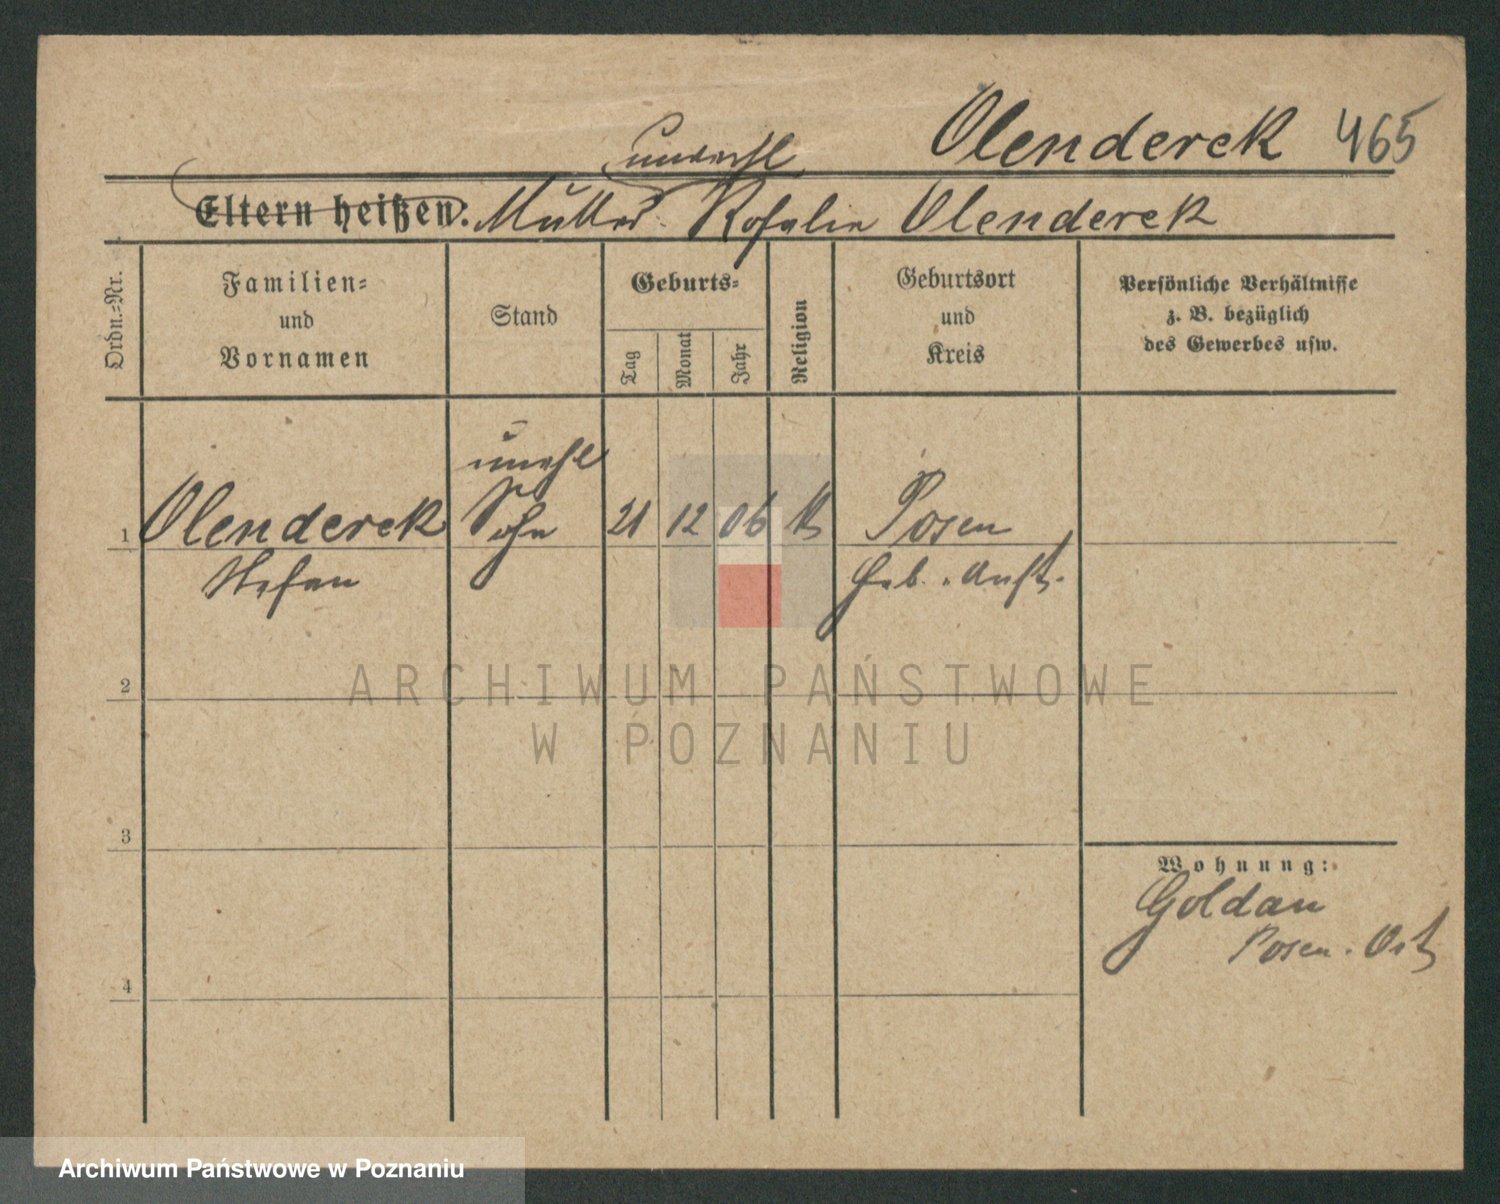 Olenderek 465
unverehl
Eltern heißen: Mutter Rosalie Olenderek
Ordn.=Nr.
Familien=
und
Vornamen
Stand
Geburts=
Tag
Monat
Jahr
Religion
Geburtsort
und
Kreis
Persönliche Verhältnisse
z. B. bezüglich
des Gewerbes usw.
1
Olenderek
Stefan
unehl
Sohn
21
12
06
K
Posen
Geb. Anst.
2
3
4
Wohnung:
Goldau
Posen. Ost
ARCHIWUM PAŃSTWOWE
W POZNANIU
Archiwum Państwowe w Poznaniu